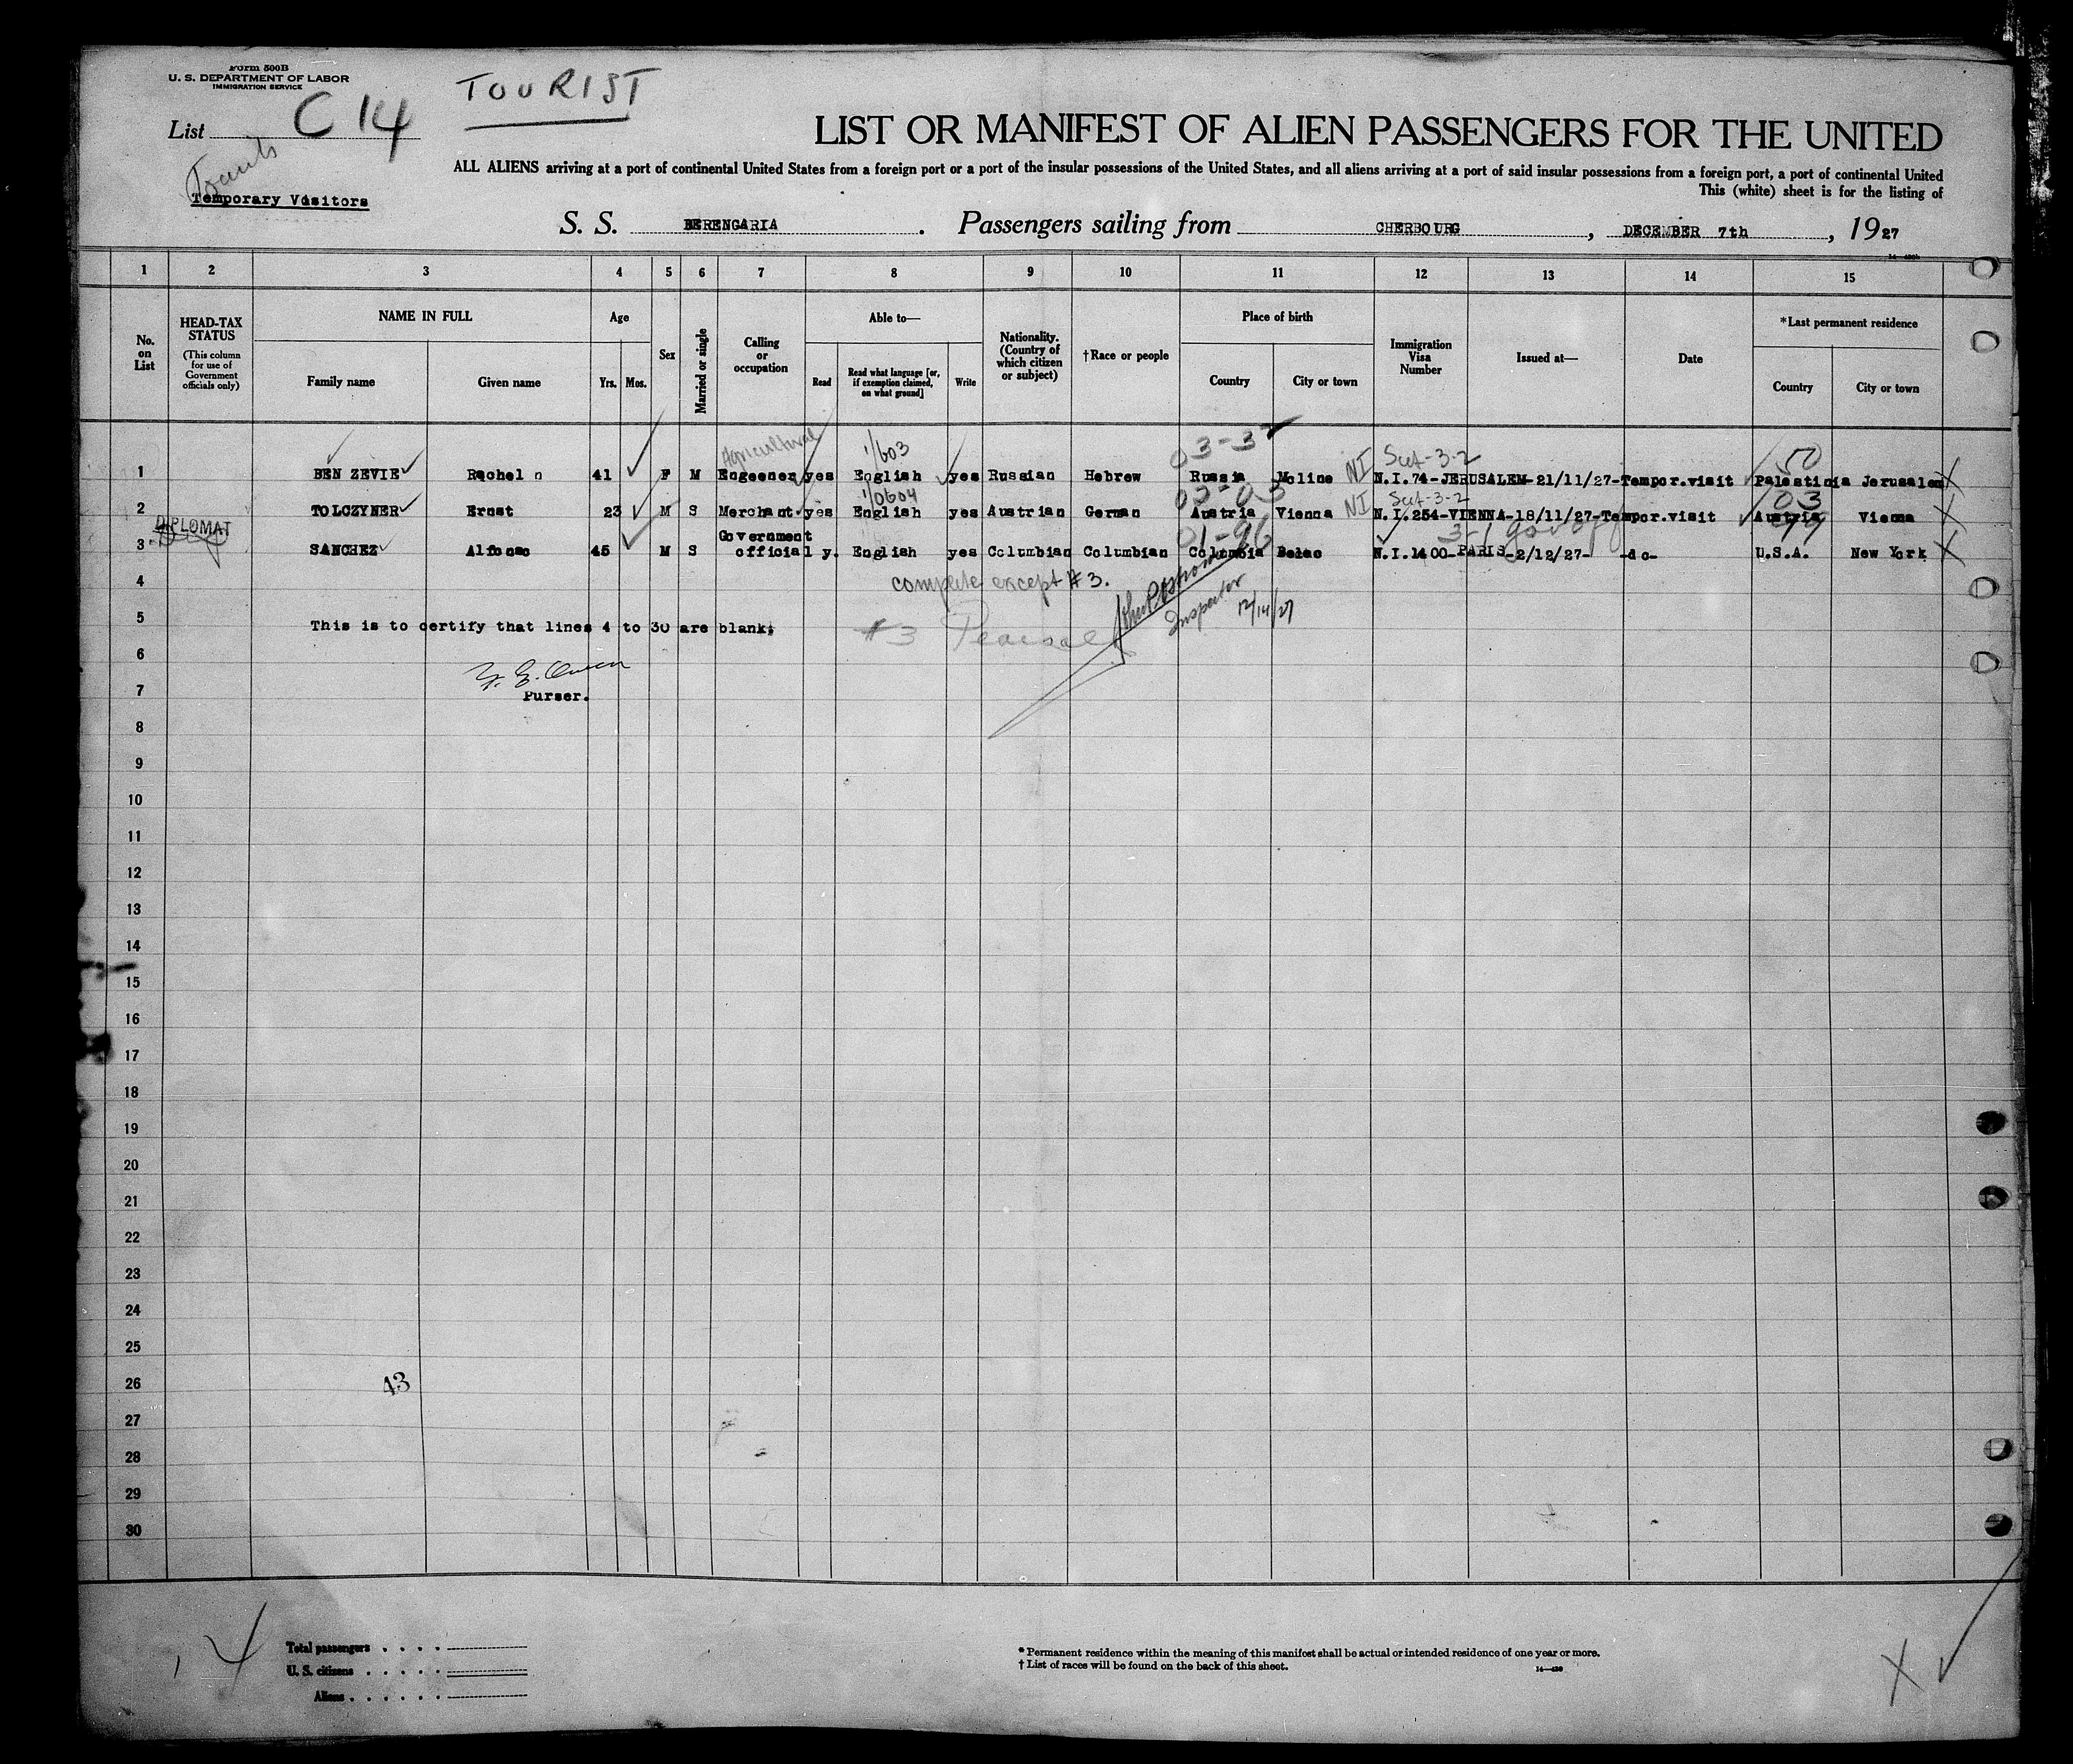 Form 500B
U. S. DEPARTMENT OF LABOR
IMMIGRATION SERVICE
TOURIST
List C 14
LIST OR MANIFEST OF ALIEN PASSENGERS FOR THE UNITED
ALL ALIENS arriving at a port of continental United States from a foreign port or a port of the insular possessions of the United States, and all aliens arriving at a port of said insular possessions from a foreign port, a port of continental United
This (white) sheet is for the listing of
Temporary Visitors
S. S. BERENGARIA. Passengers sailing from CHERBOURG, DECEMBER 7th, 1927
1 2 3 4 5 6 7 8 9 10 11 12 13 14 15
No. on List
HEAD-TAX STATUS (This column for use of Government officials only)
NAME IN FULL
Family name Given name
Age
Yrs. Mos.
Sex
Married or single
Calling or occupation
Able to—
Read
Read what language [or, if exemption claimed, on what ground]
Write
Nationality. (Country of which citizen or subject)
†Race or people
Place of birth
Country City or town
Immigration Visa Number
Issued at—
Date
*Last permanent residence
Country City or town
Agricultural 1/603 03-3 Sct-3-2 50
1 BEN ZEVIE Rachel n 41 F M Engeener yes English yes Russian Hebrew Russia Moline NI N.I.74-JERUSALEM-21/11/27-Tempor.visit Palestinia Jerusalem X
1/0604 03-03 Sct-3-2 03
2 TOLCZYNER Ernst 23 M S Merchant yes English yes Austrian German Austria Vienna NI N.I.254-VIENNA-18/11/27-Tempor.visit Austria Vienna X
DIPLOMAT 01-96 3-1 99
3 SANCHEZ Alfonso 45 M S Government official y. English yes Columbian Columbian Columbia N.I.1400-PARIS-2/12/27- -do- U.S.A. New York X
4 complete except #3.
Inspector 12/14/27
5 This is to certify that lines 4 to 30 are blank. #3
6
7 Purser.
8
9
10
11
12
13
14
15
16
17
18
19
20
21
22
23
24
25
26 43
27
28
29
30
Total passengers . . . .
U. S. citizens . . . . .
Aliens . . . . . .
* Permanent residence within the meaning of this manifest shall be actual or intended residence of one year or more.
† List of races will be found on the back of this sheet.
14—430
X